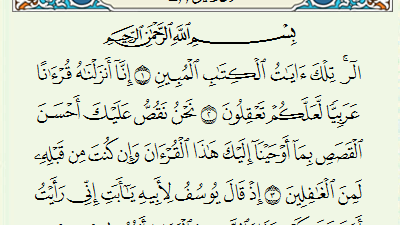 بِسْمِ ٱللَّهِ ٱلرَّحْمَٰنِ ٱلرَّحِيمِ
الٓر ۚ تِلْكَ ءَايَٰتُ ٱلْكِتَٰبِ ٱلْمُبِينِ ۝١ إِنَّآ أَنزَلْنَٰهُ قُرْءَٰنًا
عَرَبِيًّا لَّعَلَّكُمْ تَعْقِلُونَ ۝٢ نَحْنُ نَقُصُّ عَلَيْكَ أَحْسَنَ
ٱلْقَصَصِ بِمَآ أَوْحَيْنَآ إِلَيْكَ هَٰذَا ٱلْقُرْءَانَ وَإِن كُنتَ مِن قَبْلِهِۦ
لَمِنَ ٱلْغَٰفِلِينَ ۝٣ إِذْ قَالَ يُوسُفُ لِأَبِيهِ يَٰٓأَبَتِ إِنِّى رَأَيْتُ